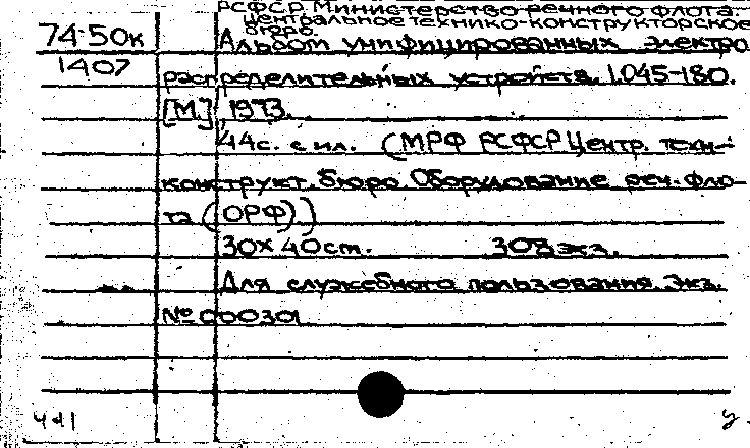 РСФСР. Министерство речного флота.
Центральное технико-конструкторское
бюро.
74-50к Альбом унифицированных электро
1407
распределительных устройств. 1.045-180.
[М.], 1973.
44с. с ил. (МРФ РСФСР Центр. техн-
конструкт. бюро Оборудование реч. фло-
та (ОРФ))
30х40cm. 308экз.
Для служебного пользования. Экз.
№ 000301
у